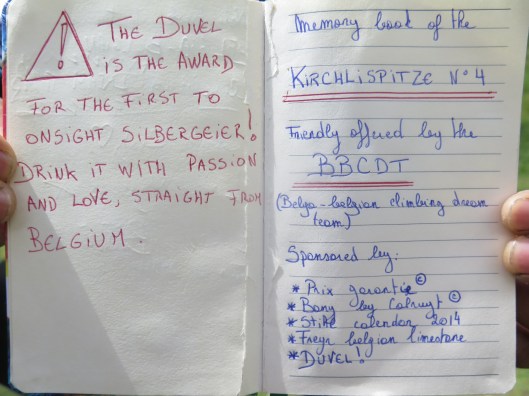 THE DUVEL
IS THE AWARD
FOR THE FIRST TO
ONSIGHT SILBERGEIER!
DRINK IT WITH PASSION
AND LOVE, STRAIGHT FROM
BELGIUM.
Memory book of the
KIRCHLISPITZE N°4
Friendly offered by the
BBCDT
(Belgo-belgian climbing dream
team)
Sponsored by:
* Prix garantie ©
* Bony by Colruyt ©
* calendar 2014
* Freyr belgian limestone
* DUVEL!